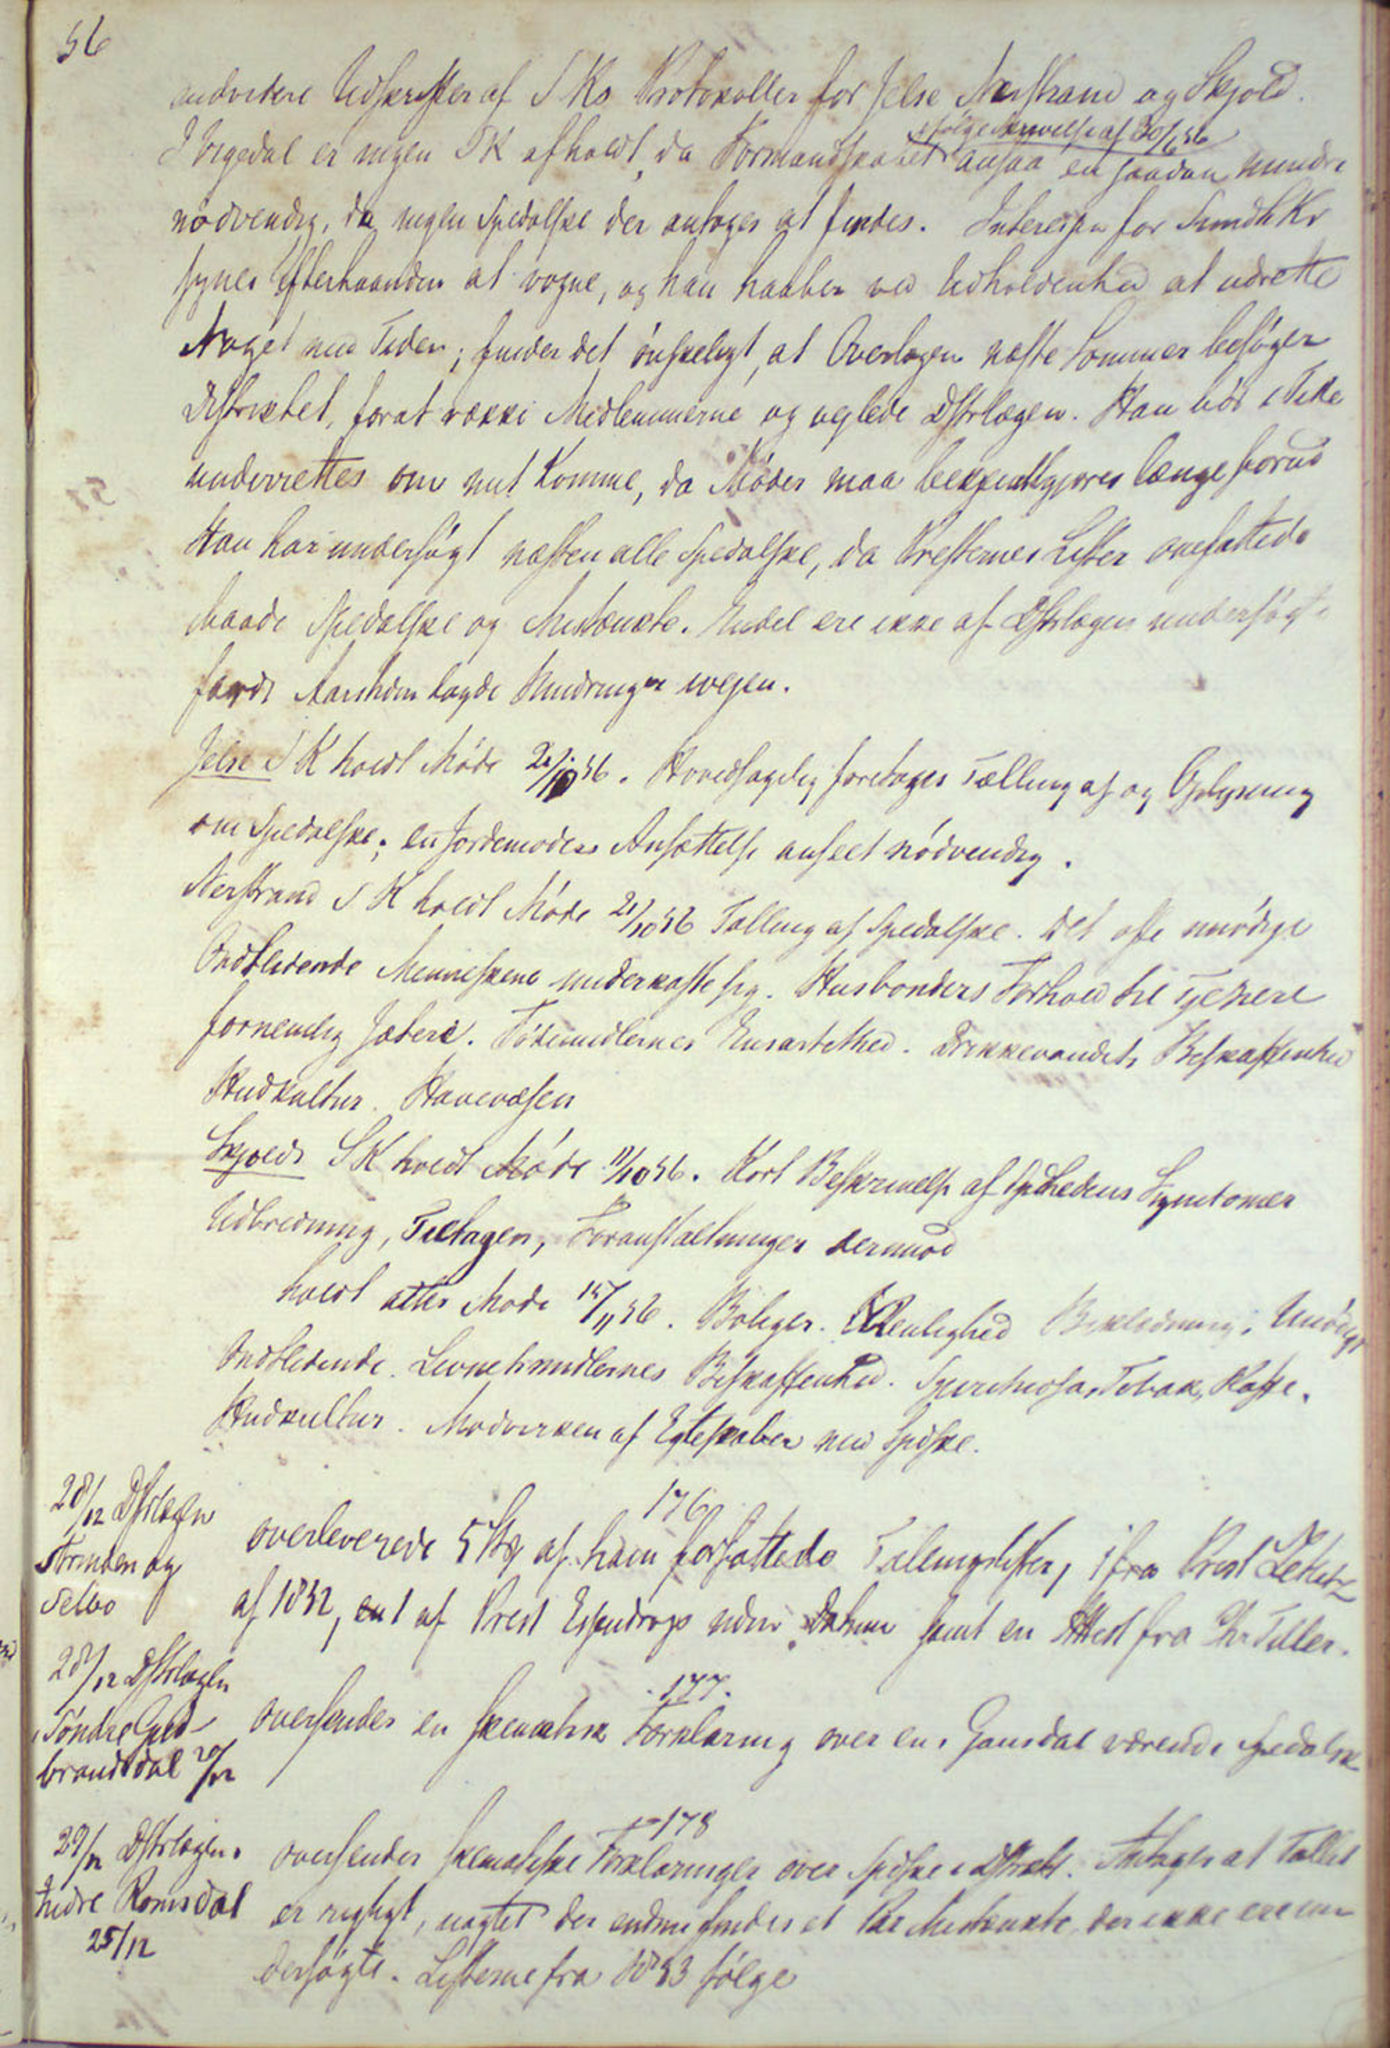 56
endvidere Udskrifter af SKs Protokoller for Jelse Nerstrand og Skjold.
ifølge Skrivelse af 30/6 56
I Vigedal er ingen SK afholdt, da Formandskabet ansaa en saadan mindre
nødvendig, da ingen Spedalske der antages at findes. Interessen for SundhKs
synes efterhaanden at vogne, og han haaber ved Udholdenhed at udrette
Noget med Tiden; finder det ønskeligt, at Overlægen næste Sommer besøger
Distriktet, forat vække Medlemmerne og vejlede Dstrlægen. Han bør i Tide
underrettes om mit Komme, da Møder maa bekjentgjøres længe forud
Han har undersøgt næsten alle Spedalske, da Presternes Lister omfattede
baade Spedalske og Mistænkte. Endel ere ikke af Dstrlægen undersøgte
fordi Aarstiden lagde Hindringer ivejen.
Jelse SK holdt Møde 2/10 56. Hovedsagelig foretoges Tælling af og Oplysning
om Spedalske; en Jordemoders Ansættelse anseet nødvendig.
Nerstrand SK holdt Møde 21/10 56 Tælling af Spedalske. Det ofte unødige
Ondtlidende Menneskene underkaste sig. Husbonders Forhold til Tjenere
fornemlig Jætere. Fødemidlernes Ensartethed. Drikkevandets Beskaffenhed
Hudkultur. Havevæsen
Skjolds SK holdt Møde 11/10 56. Kort Beskrivelse af Spdhedens Symtomer
Udbredning, Tiltagen, Foranstaltninger dermod
holdt atter Møde 15/11 56. Boliger. Renlighed Beklædning. Unødigt
Ondtlidende. Levnetsmidlernes Beskaffenhed. Spirituosa, Tobak, Kaffe.
Hudkultur. Modvirken af Egteskaber med Spdske.
176
28/12 Dstrlægen
Strinden og
Selbo
overleverede 5 Stkr af ham forfattede Tællingslister, 1 fra Prest
af 1852, 1 af Prest Essendrop uden Datum samt en Attest fra Chr Tiller.
177.
28/12 Dstrlægen
Søndre Gud-
brandsdal 20/12
oversender en skematisk Forklaring over en i Gausdal værende Spedalsk
178
29/12 Dstrlægen
Indre Romsdal
25/12
oversender skematiske Forklaringer over Spdske i Dstrktet. Antager at Tallet
er rigtigt, uagtet der endnu findes et Par Mistænkte der ikke ere un-
dersøgte. Listerne fra 1853 følge